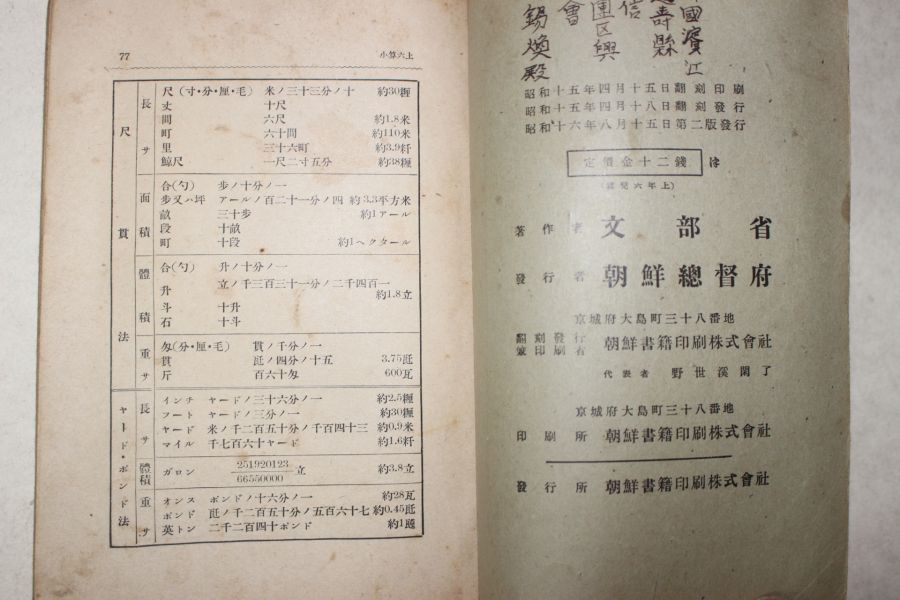 77
小算六上
尺貫法
長サ
尺(寸・分・厘・毛) 米ノ三十三分ノ十 約30糎
丈 十尺
間 六尺 約1.8米
町 六十間 約110米
里 三十六町 約3.9粁
鯨尺 一尺二寸五分 約38糎
面積
合(勺) 歩ノ十分ノ一
歩又ハ坪 アールノ百二十一分ノ四 約3.3平方米
畝 三十歩 約1アール
段 十畝
町 十段 約1ヘクタール
體積
合(勺) 升ノ十分ノ一
升 立ノ千三百三十一分ノ二千四百一 約1.8立
斗 十升
石 十斗
重サ
匁(分・厘・毛) 貫ノ千分ノ一
貫 瓩ノ四分ノ十五 3.75瓩
斤 百六十匁 600瓦
ヤード・ポンド法
長サ
インチ ヤードノ三十六分ノ一 約2.5糎
フート ヤードノ三分ノ一 約30糎
ヤード 米ノ千二百五十分ノ千百四十三 約0.9米
マイル 千七百六十ヤード 約1.6粁
體積
ガロン 251920123/66550000 立 約3.8立
重サ
オンス ポンドノ十六分ノ一 約28瓦
ポンド 瓩ノ千二百五十分ノ五百六十七 約0.45瓩
英トン 二千二百四十ポンド 約1瓲
國濱江
壽縣
區興
信
會
錫煥殿
昭和十五年四月十五日翻刻印刷
昭和十五年四月十八日翻刻發行
昭和十六年八月十五日第二版發行
定價金十二錢
(算兒六年上)
著作者 文部省
發行者 朝鮮總督府
京城府大島町三十八番地
翻刻發行兼印刷者 朝鮮書籍印刷株式會社
代表者 野世溪閑了
京城府大島町三十八番地
印刷所 朝鮮書籍印刷株式會社
發行所 朝鮮書籍印刷株式會社